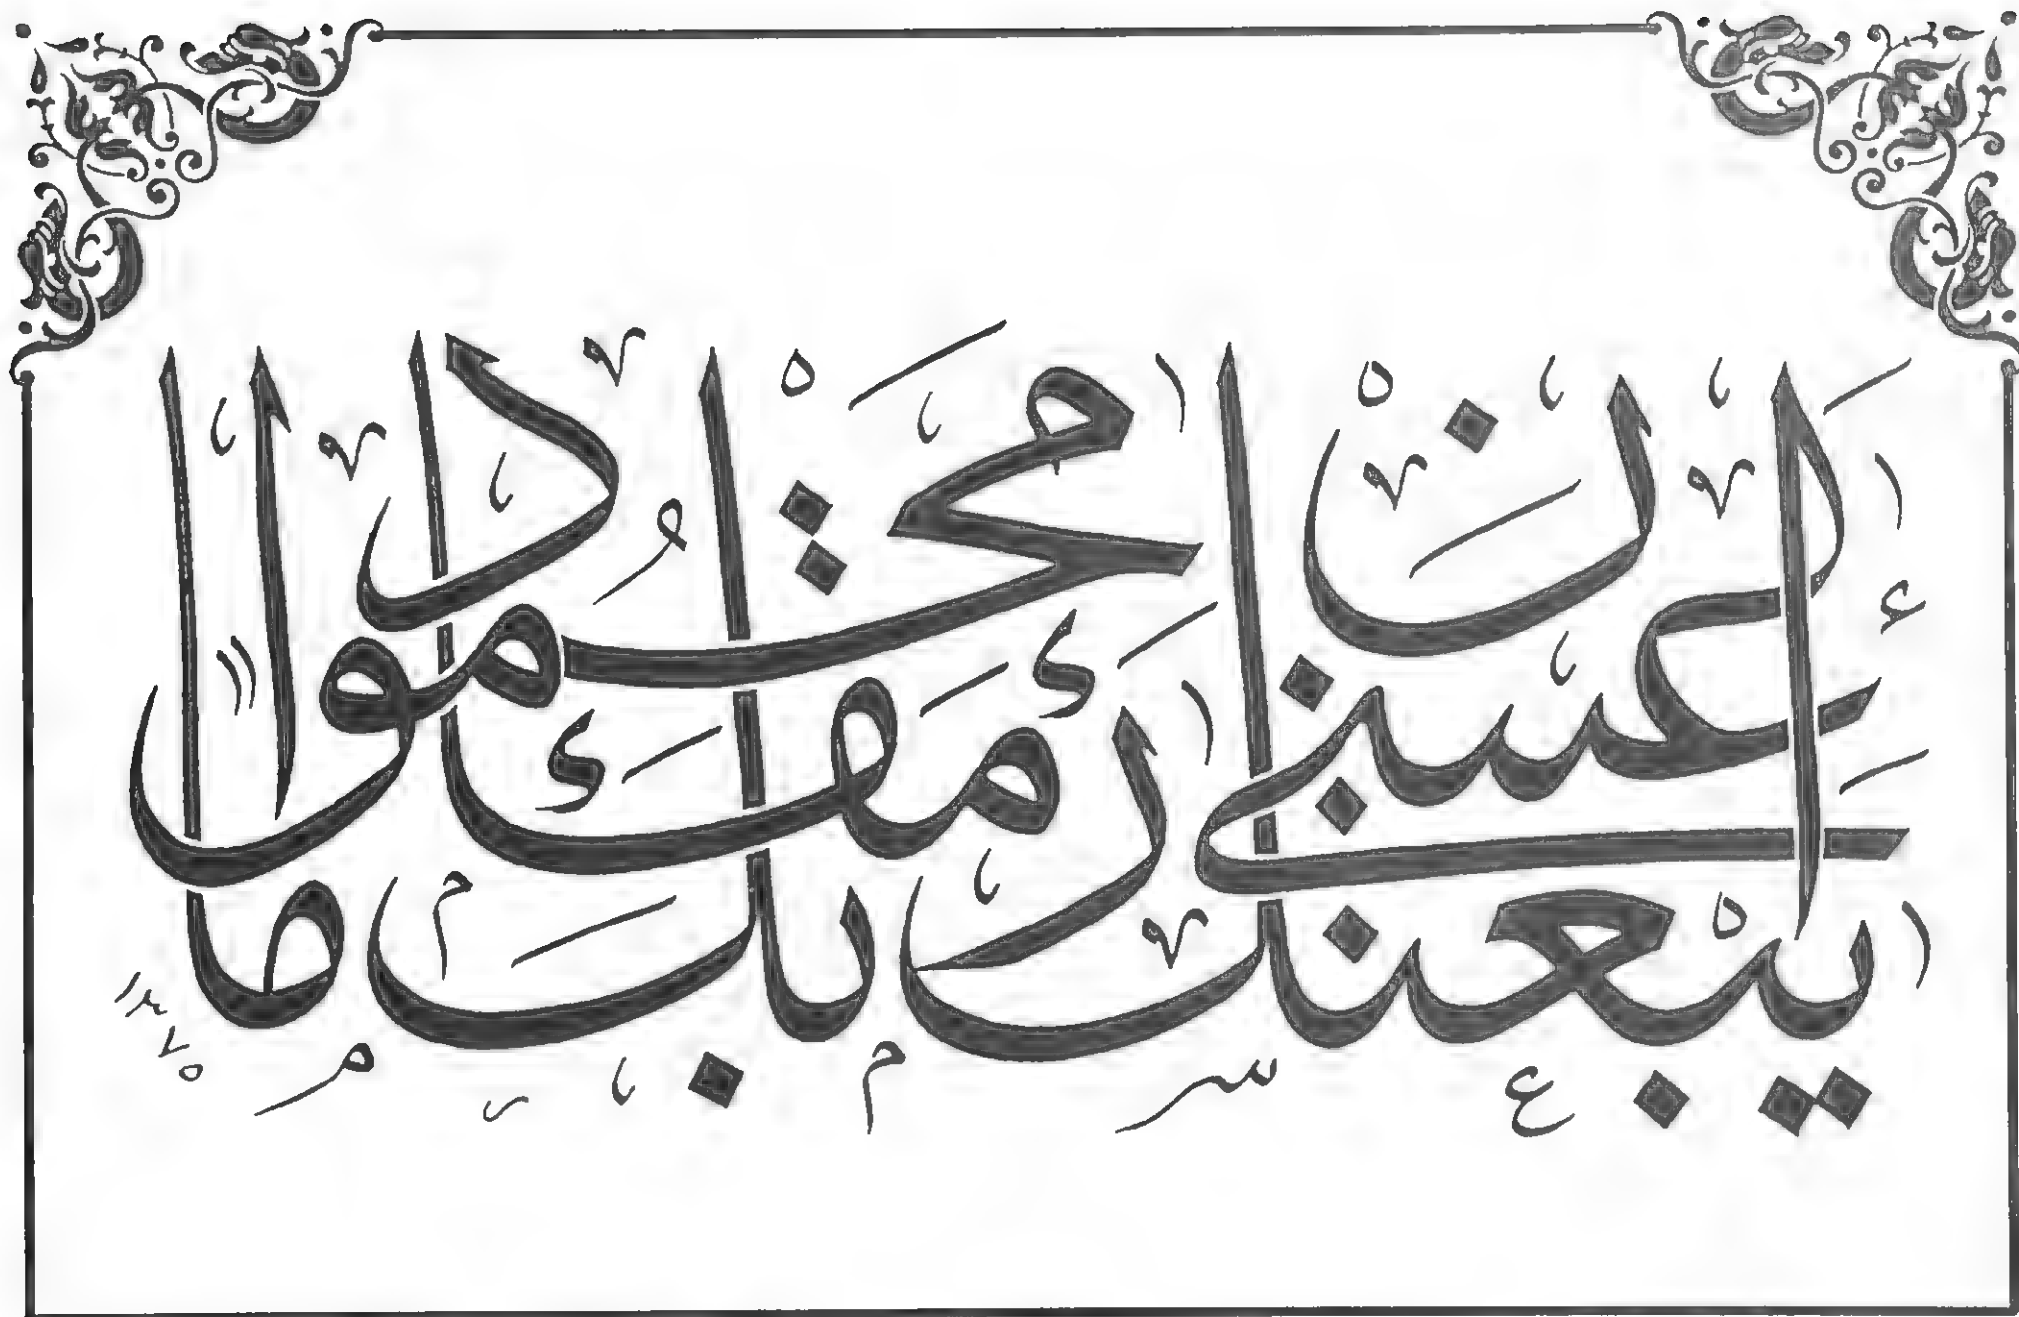 عسى أن يبعثك ربك مقاما محمودا
١٣٧٥